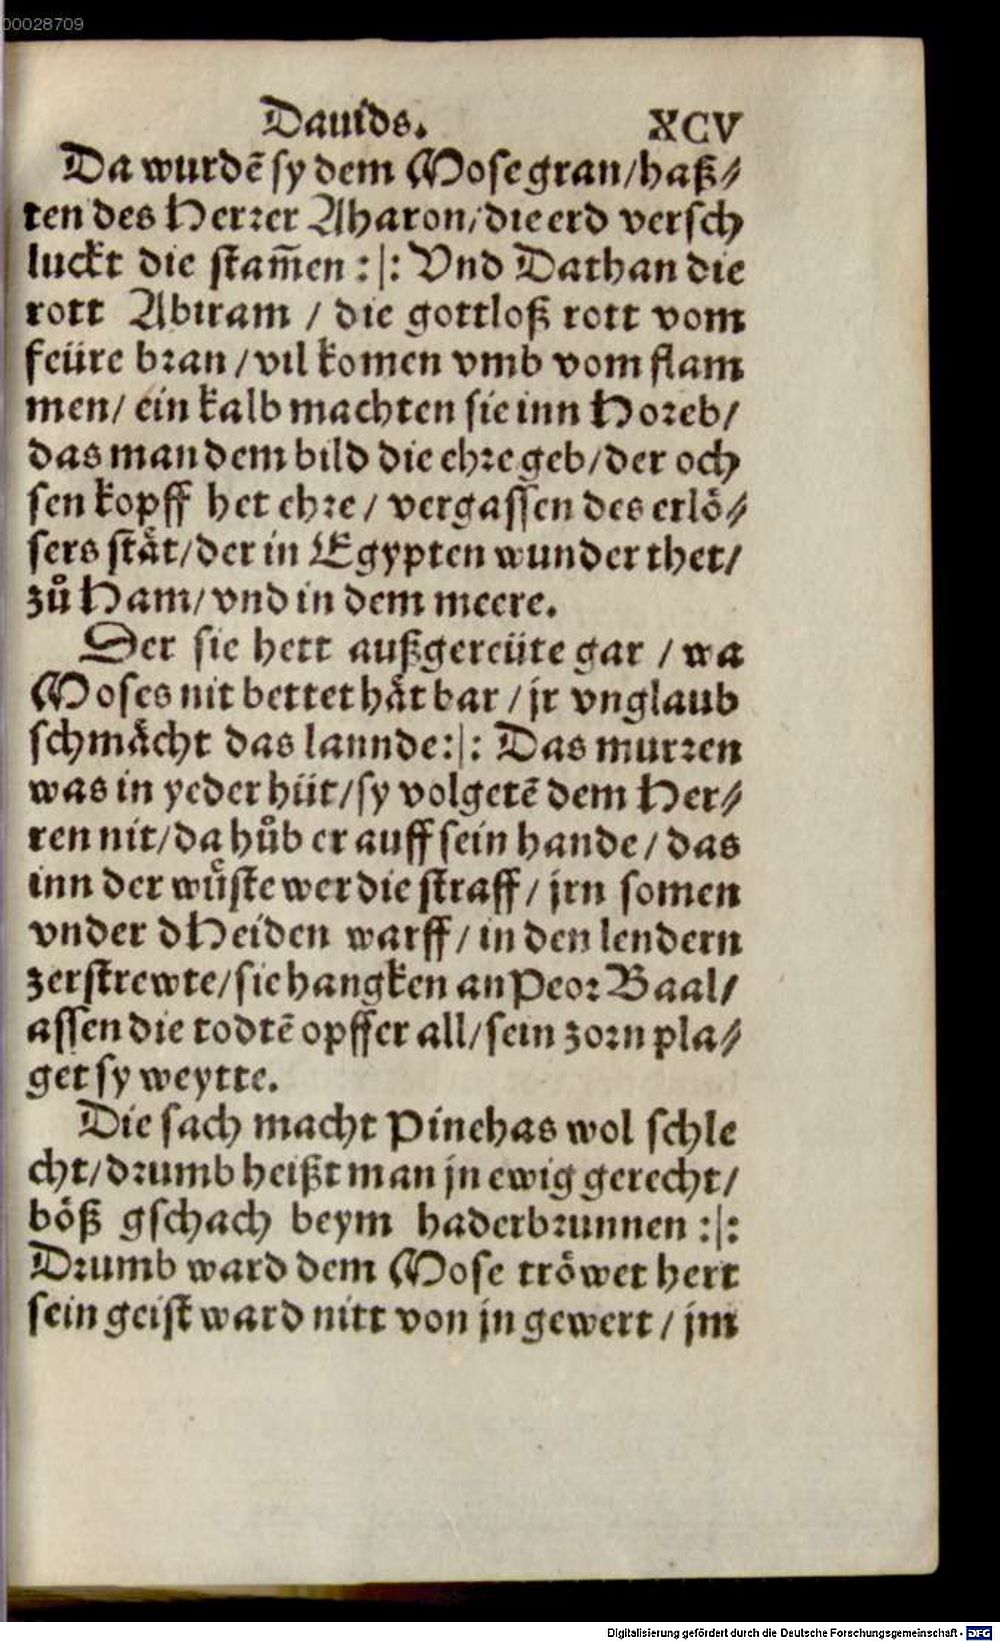 00028709
Dauids. XCV
Da wurdẽ sy dem Mose gran/haß⸗
ten des Herrer Aharon/die erd versch
luckt die stam̃en :|: Vnd Dathan die
rott Abiram / die gottloß rott vom
feüre bran /vil komen vmb vom flam
men/ ein kalb machten sie inn Horeb/
das man dem bild die ehre geb/der och
sen kopff het ehre / vergassen des erlö⸗
sers ståt/der in Egypten wunder thet/
zů Ham/vnd in dem meere.
Der sie hett außgereüte gar / wa
Moses nit bettet håt bar / jr vnglaub
schmåcht das lannde:|: Das murren
was in yeder hüt/sy volgetẽ dem Her⸗
ren nit/da hůb er auff sein hande / das
inn der wůste wer die straff / jrn somen
vnder dHeiden warff/ in den lendern
zerstrewte/sie hangken an Peor Baal/
assen die todtẽ opffer all/sein zorn pla⸗
get sy weytte.
Die sach macht Pinehas wol schle
cht/drumb heißt man jn ewig gerecht/
böß gschach beym haderbrunnen :|:
Drumb ward dem Mose tröwet hert
sein geist ward nitt von jn gewert / jm
Digitalisierung gefördert durch die Deutsche Forschungsgemeinschaft - DFG